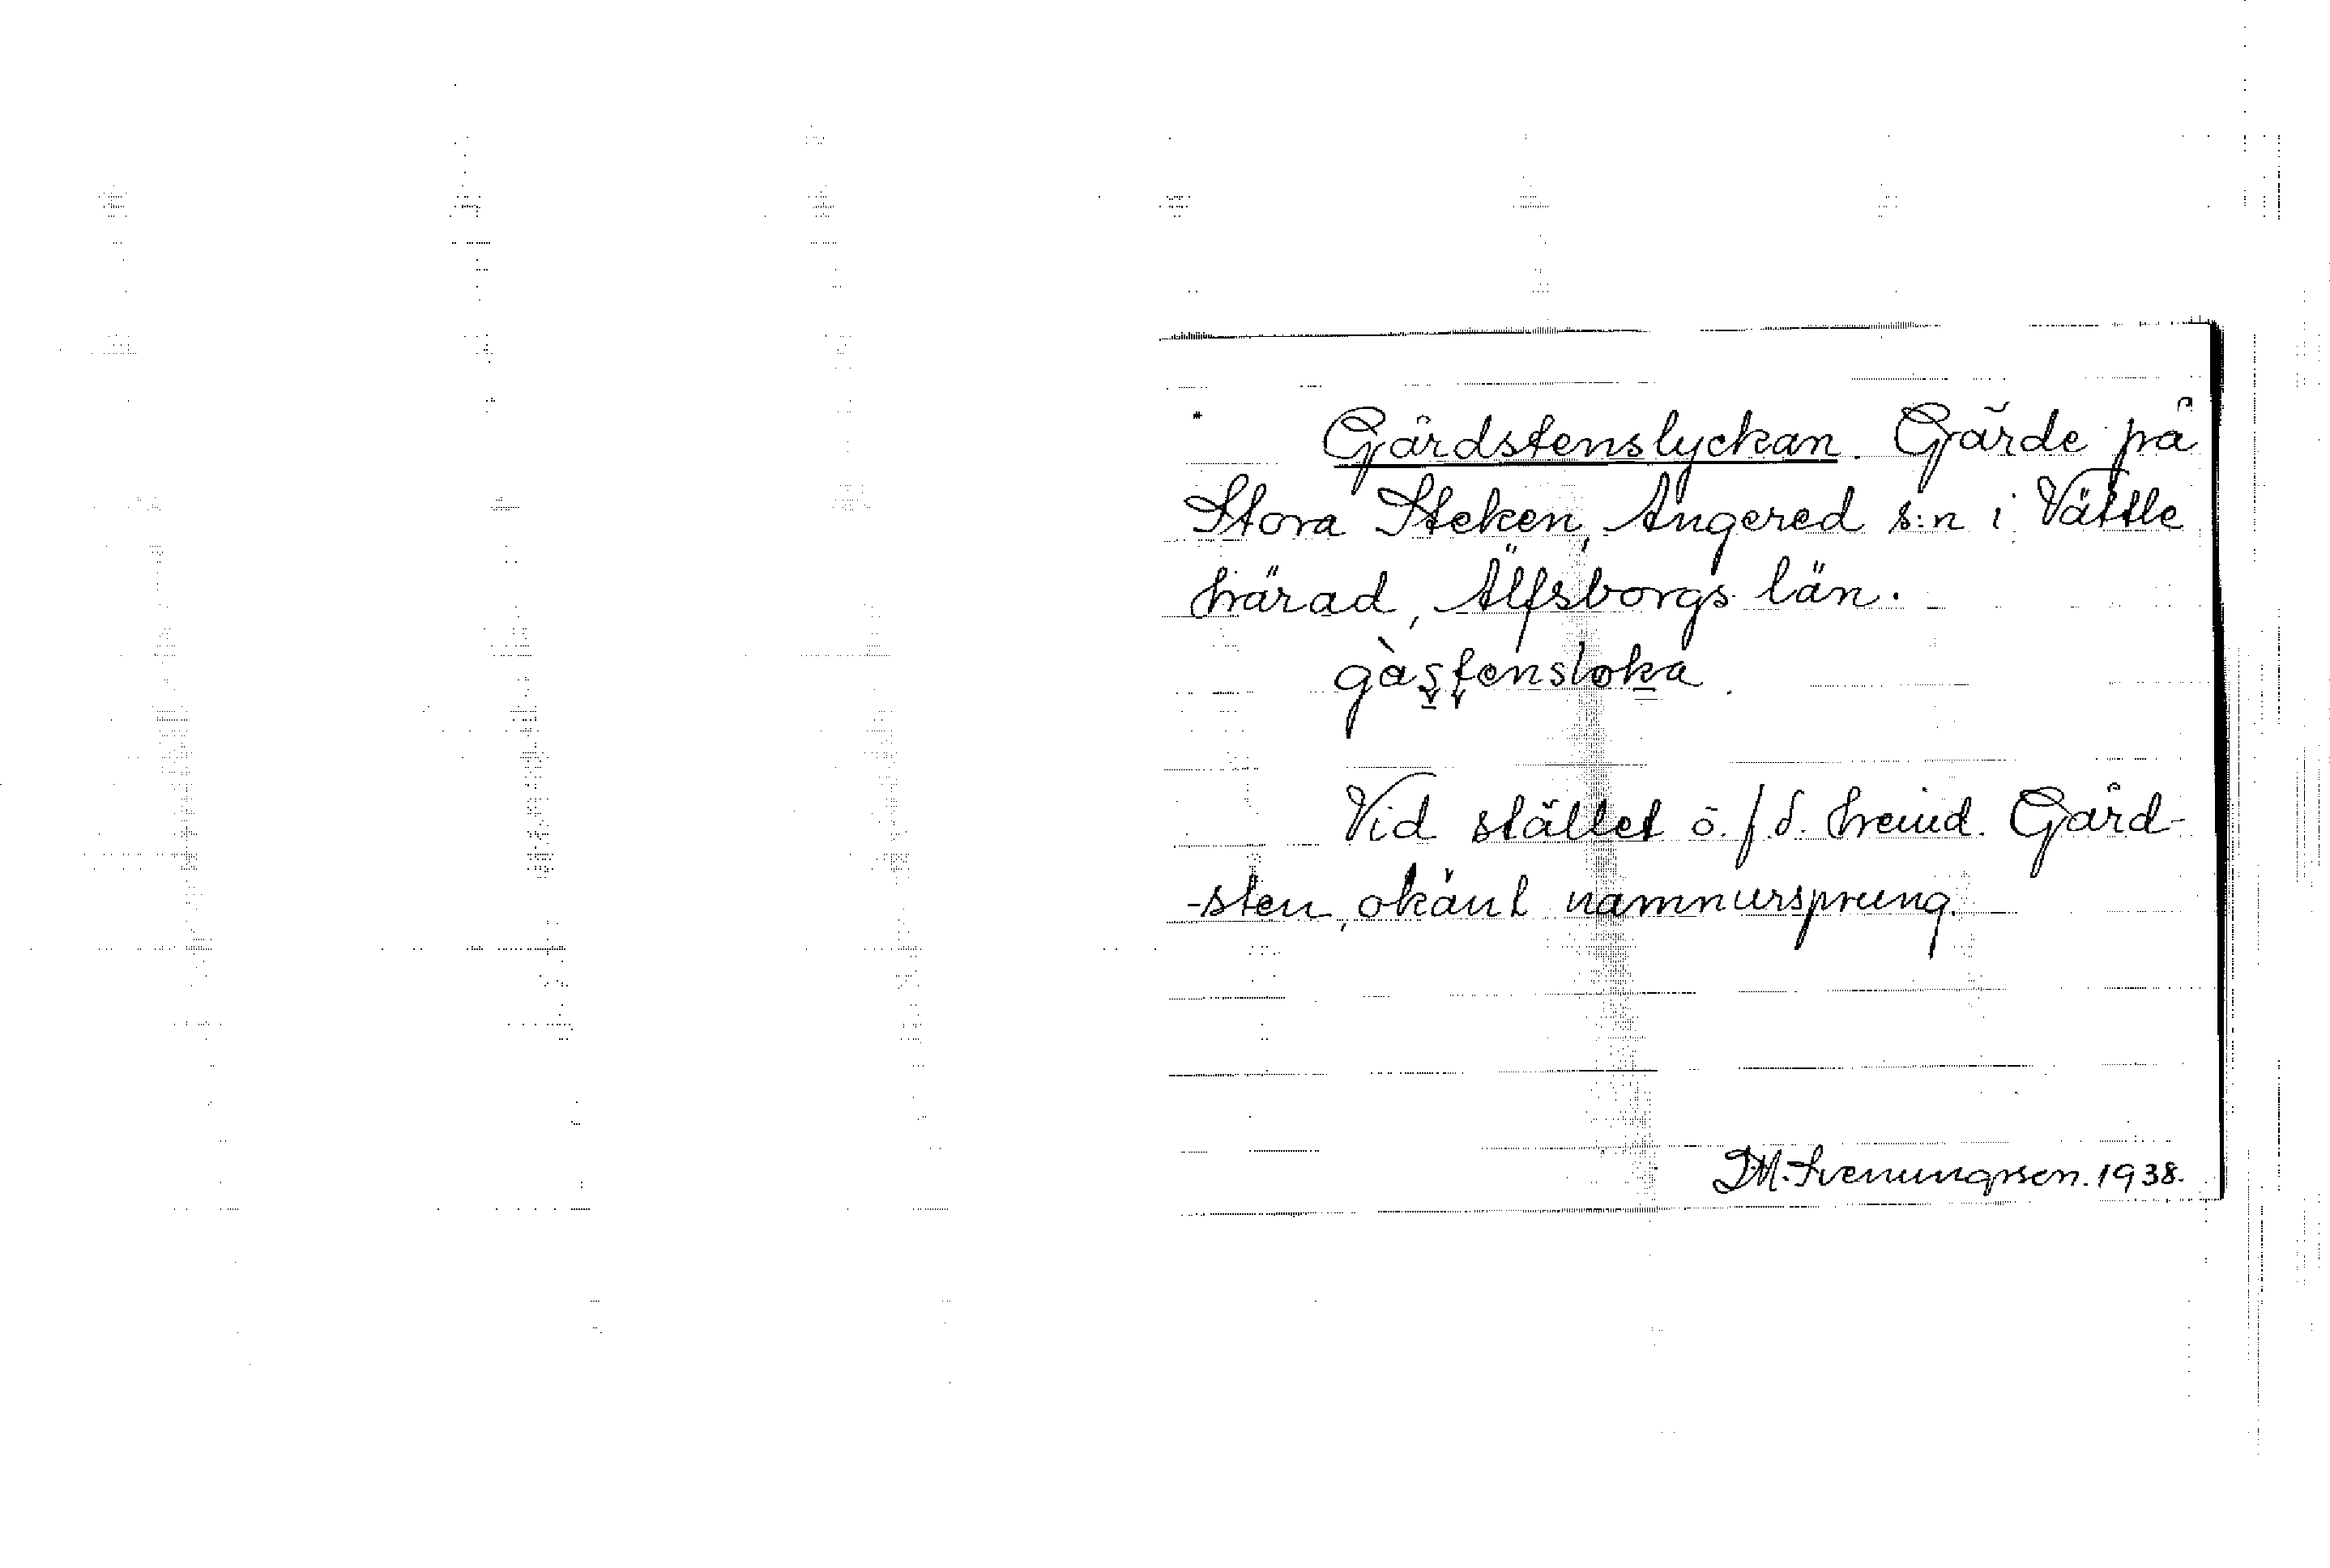 Gårdstenslyckan. Gärde på
Stora Steken, Angered s:n i Vättle
härad, Älfsborgs län.
gàstensloka.
Vid stället ö. f. d. hemd. Gård-
-sten, okänt namnursprung.
D.M. Svenungsson. 1938.